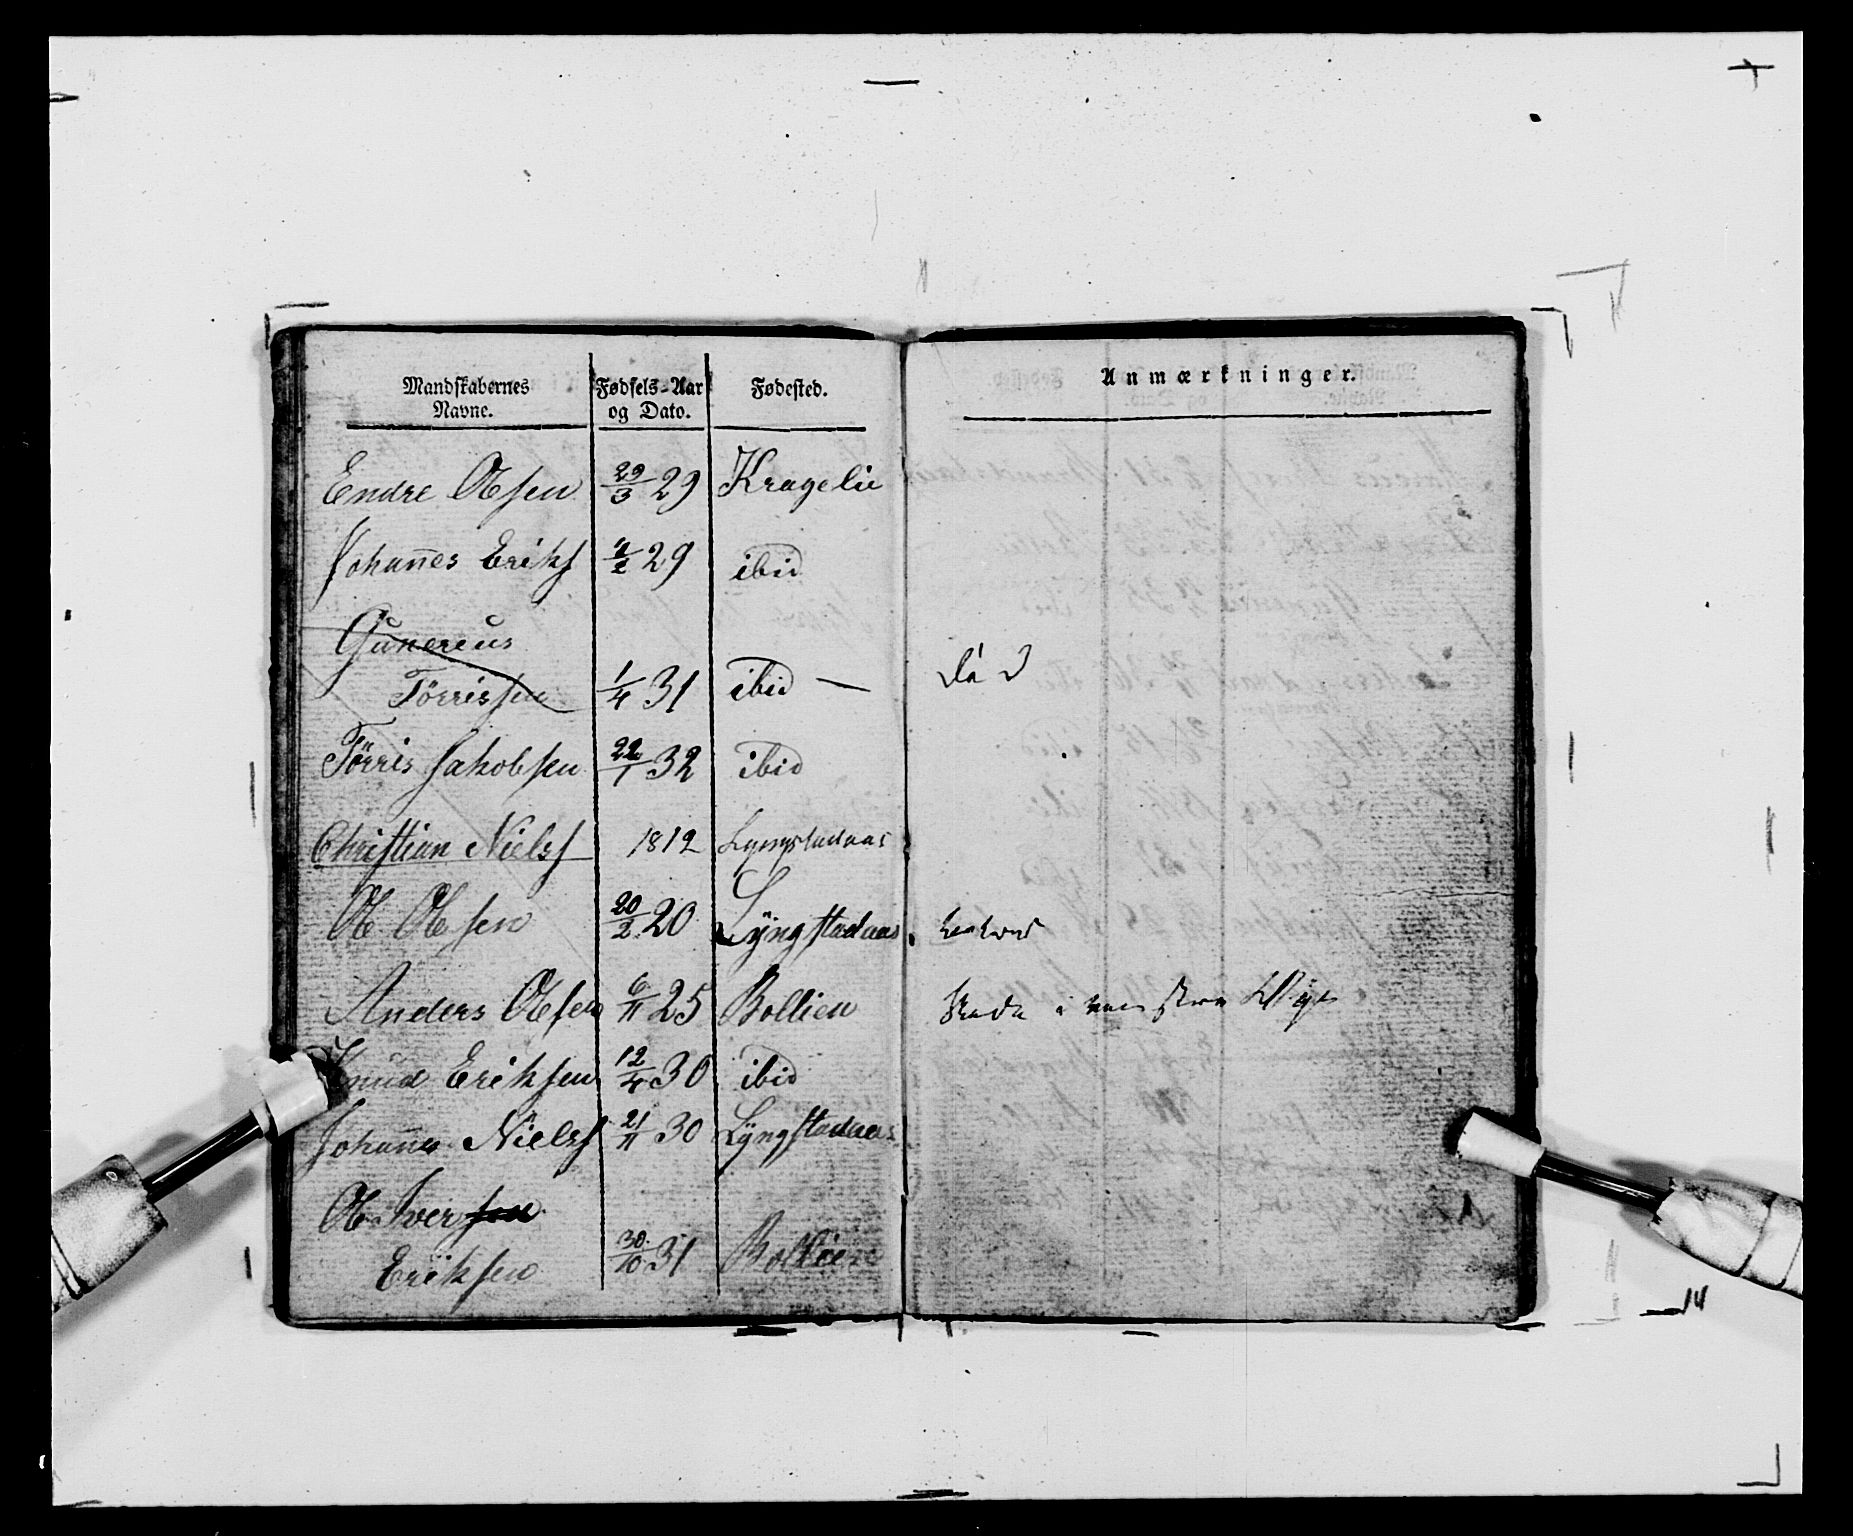 Mandskabernes Navne. Fødsels-Aar og Dato. Fødested. Anmærkninger.
Endre Olsen 29/3 29 Kragelie
Johannes Eriks 29 ibid
Gunereus
Törrissen 1/4 31 ibid — Död
Törris Jakobsen 22/1 32 ibid
Christian Niels 1812 Lyngstadaas
Ole Olsen 20/2 20 Lÿngstadaas
Anders Olsen 6/11 25 Bollien Skade i venstre Øye
Knud Eriksen 12/4 30 ibid
Johannes Niels 21/11 30 Lÿngstadaas
Ole Iversen
Eriksen 30/10 31 Bollien
14